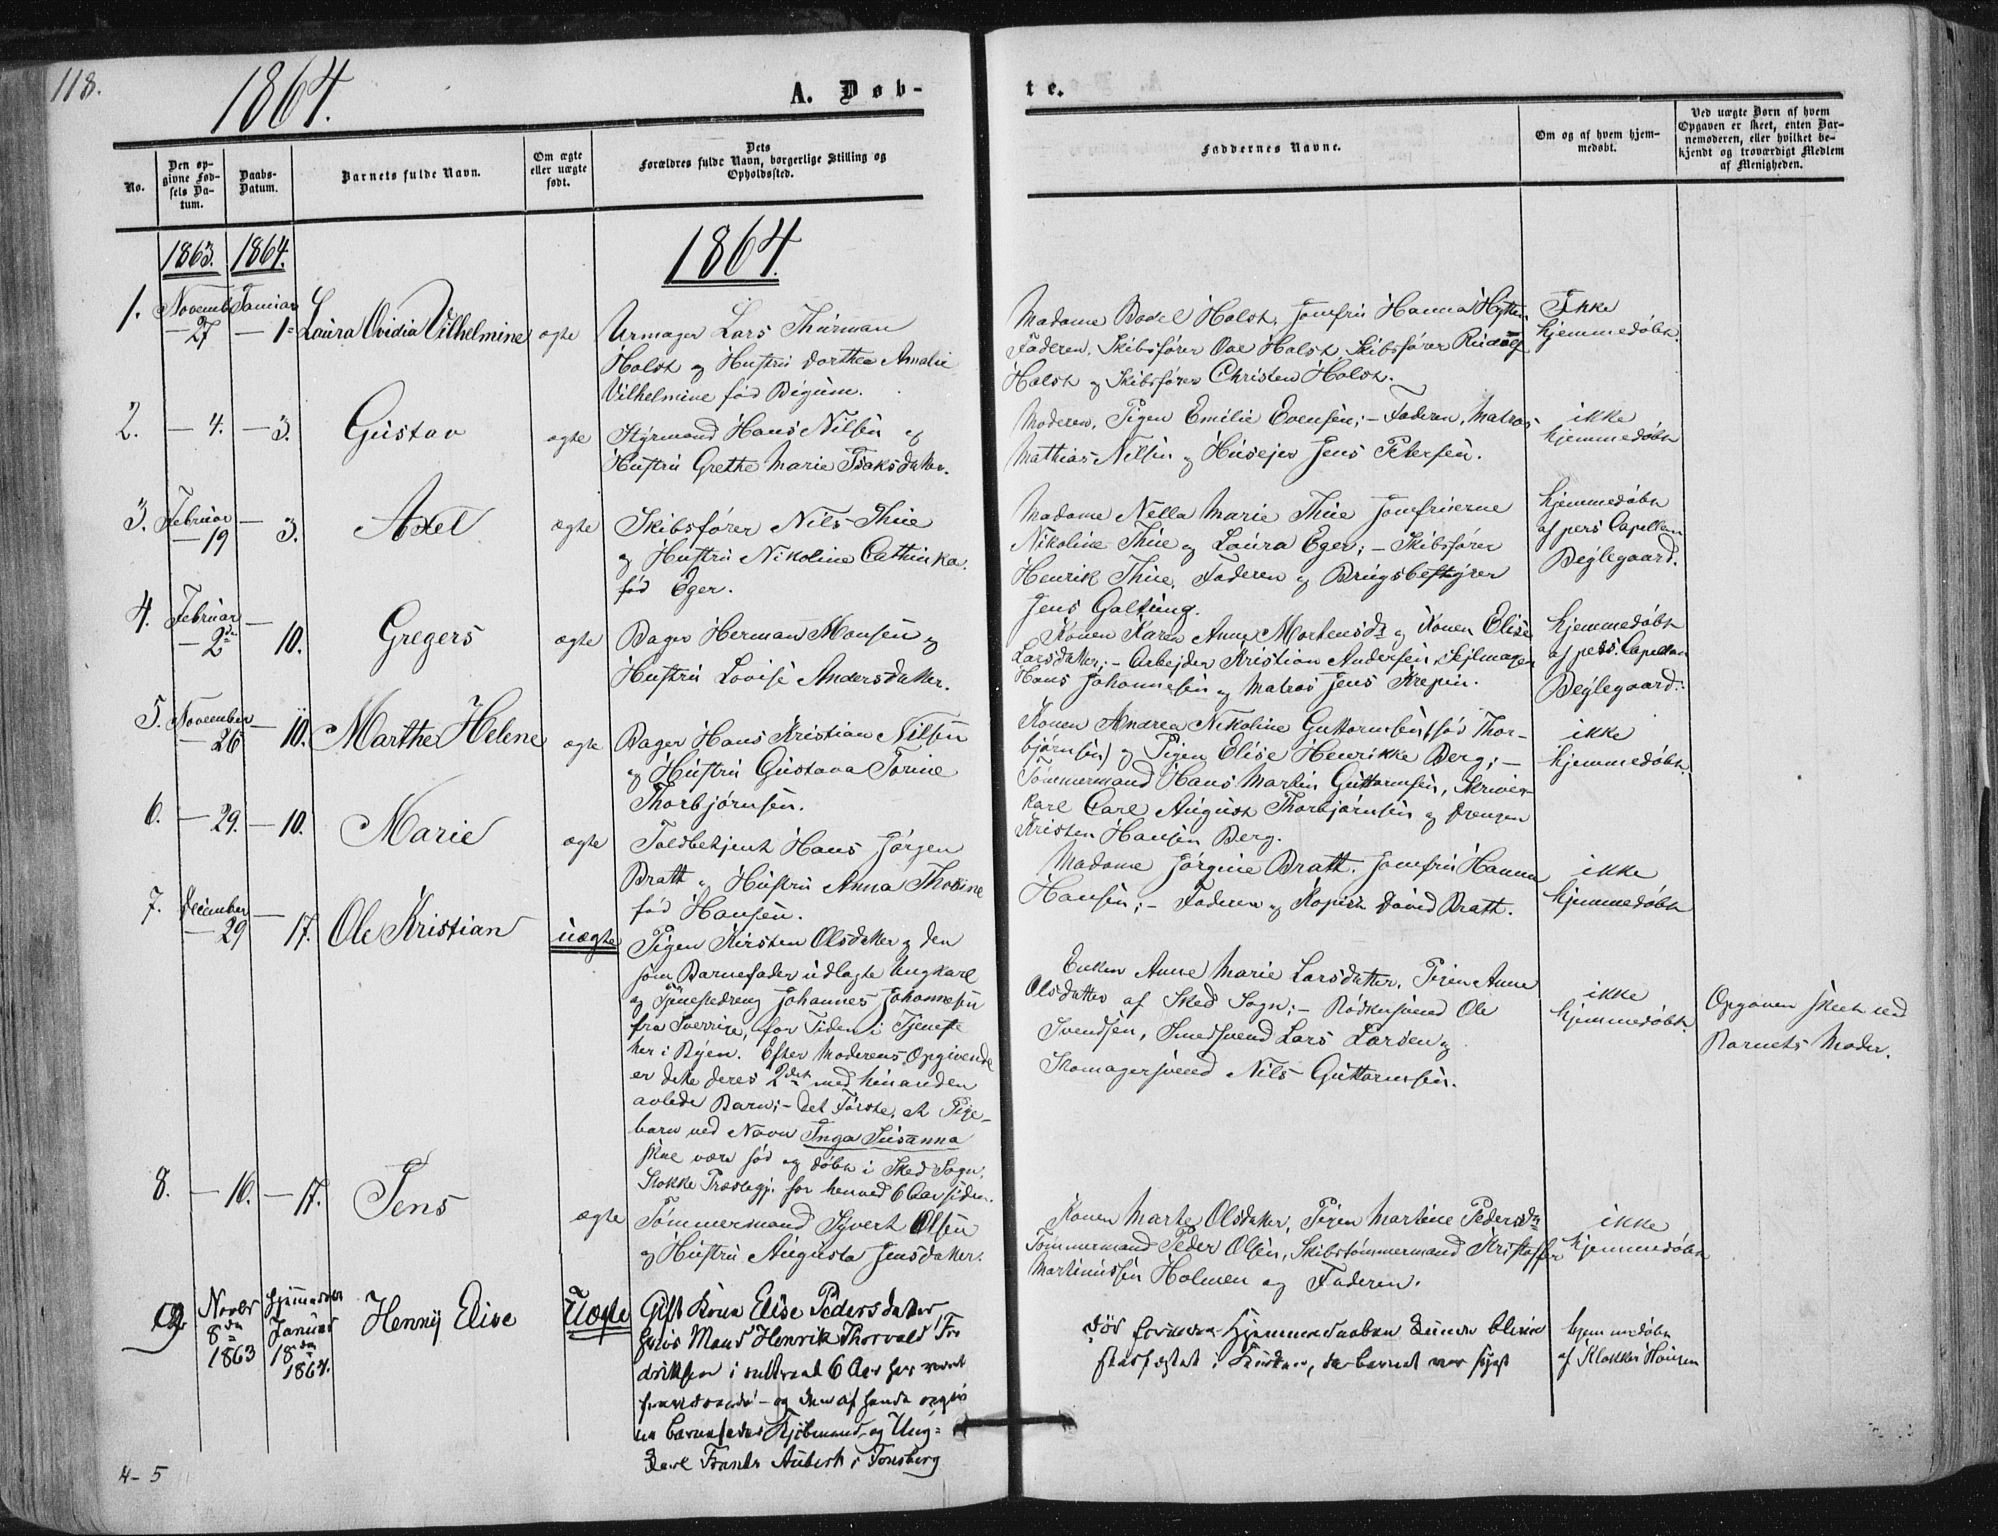 118.
1864.
A. Døb-
te.
No.
Den op-
givne Fød-
sels Da-
tum.
Daabs-
Datum.
Barnets fulde Navn.
Om ægte
eller uægte
født.
Dets
Forældres fulde Navn, borgerlige Stilling og
Opholdssted.
Faddernes Navne.
Om og af hvem hjem-
medøbt.
Ved uægte Børn af hvem
Opgaven er skeet, enten Bar-
nemoderen, eller hvilket be-
kjendt og troværdigt Medlem
af Menigheden.
1863. 1864.
1864.
1. Novemb. Januar
27 — 1
Laura Ovidia Vilhelmine
ægte
Urmager Lars Thurman
Holst og Hustru Dorthea Amalie
Vilhelmine fød Bigum.
Madame Bodel Holst, Jomfru Hanna
Faderen, Skibsfører Ove Holst, Skibsfører Rudolf
Holst og Skibsfører Christen Holst.
Ikke
hjemmedøbt.
2. — 4. — 3.
Gustav
ægte
Styrmand Hans Nilsen og
Hustru Grethe Marie Isaksdatter.
Moderen, Pigen Emilie Evensen; — Faderen, Matros
Mathias Nilsen og Huseier Jens Petersen.
ikke
hjemmedøbt
3. Februar
— 19 — 3.
Axel
ægte
Skibsfører Nils Thue
og Hustru Nikoline Cathinka
fød Eger.
Madame Nella Marie Thue Jomfruerne
Nikoline Thue og Laura Eger; — Skibsfører
Henrik Thue, Faderen og Brugsbestyrer
Jens Galtung.
hjemmedøbt
af pers Capellan
Bøylegaard.
4. Februar
— 2den — 10.
Gregers
ægte
Bager Herman Monsen og
Hustru Lovise Andersdatter.
Konen Karen Anne Mortensdr og Konen Elise
Larsdatter; — Arbeider Kristian Andersen, Seilmager
Hans Johannesen og Matros Jens Krepin.
hjemmedøbt
af pers. Capellan
Bøylegaard.
5. November
— 26 — 10.
Marthe Helene
ægte
Bager Hans Kristian Nilsen
og Hustru Gustava Torine
Thorbjørnsen.
Konen Andrea Nikoline Guttormsen (fød Thor-
bjørnsen) og Pigen Elise Henrikke Berg; —
Tømmermand Hans Martin Guttormsen, Skriver-
karl Carl August Thorbjørnsen og Drengen
Kristen Hansen Berg.
ikke
hjemmedøbt.
6. — 29. — 10.
Marie
ægte
Toldbetjent Hans Jørgen
Bratt og Hustru Anna Thorine
fød Hansen.
Madame Jørgine Bratt. Jomfru Hanna
Hansen; — Faderen og Kopist David Bratt.
ikke
hjemmedøbt
7. December
— 29 — 17.
Ole Kristian
uægte
Pigen Kirsten Olsdatter og den
som Barnefader udlagte Ungkarl
og Tjenestedreng Johannes Johannesen
fra Sverrige, for Tiden i Tjeneste
her i Byen. Efter Moderens Opgivende
er dette deres 2det med hinanden
avlede Barn; — det Første, et Pige-
barn ved Navn Inga Susanna
skal være fød og døbt i Sked Sogn,
Stokke Præstegj. for henved 6 Aar siden.
Enken Anne Marie Larsdatter, Pigen Anne
Olsdatter af Sked Sogn; — Bødkersvend Ole
Svendsen, Smedsvend Lars Larsen og
Skomagersvend Nils Guttormsen.
ikke
hjemmedøbt.
Opgaven skeet ved
Barnets Moder.
8. — 16. — 17.
Jens
ægte
Tømmermand Syvert Olsen
og Hustru Augusta Jensdatter.
Konen Marte Olsdatter, Pigen Martine Pedersdr
Tømmermand Peder Olsen, Skibstømmermand Kristoffer
Martinussen Holmen og Faderen.
ikke
hjemmedøbt
9 Novbr
8de
1863
hjemmedøbt
Januar
18de
1864.
Henny Elise
Uægte
Gift Kone Elise Pedersdatter
hvis Mand Henrik Thorvald Fre
driksen i omtrent 6 Aar har været
fraværende — og den af hende opgiv
ne Barnefader Kjøbmand og Ung-
karl Frantz Aubert i Tonsberg
Død forinden Hjemmedaaben kunde blive
stadfæstet i Kirken, da barnet var sygt
hjemmedøbt
af Klokker Hansen
4-5